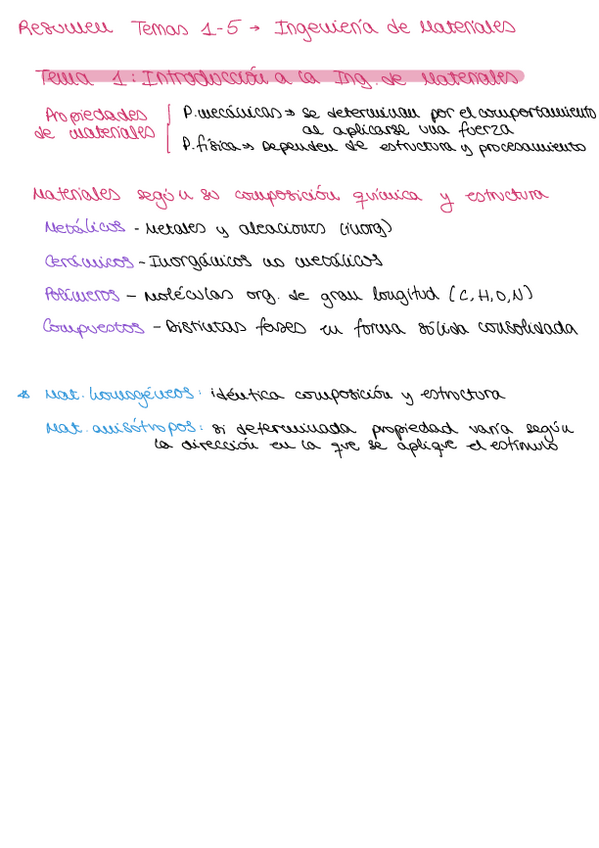 Resumen Temas 1-5 → Ingeniería de Materiales
Tema 1: Introducción a la Ing. de Materiales
Propiedades de materiales
P. mecánicas → se determinan por el comportamiento
al aplicarse una fuerza
P. física → Dependen de estructura y procesamiento
Materiales según su composición química y estructura
Metálicos - Metales y aleaciones (inorg)
Cerámicos - Inorgánicos no metálicos
Polímeros - Moléculas org. de gran longitud (C, H, O, N)
Compuestos - Distintas fases en forma sólida consolidada
* Mat. homogéneos: idéntica composición y estructura
Mat. anisótropos: si determinada propiedad varía según
la dirección en la que se aplique el estímulo